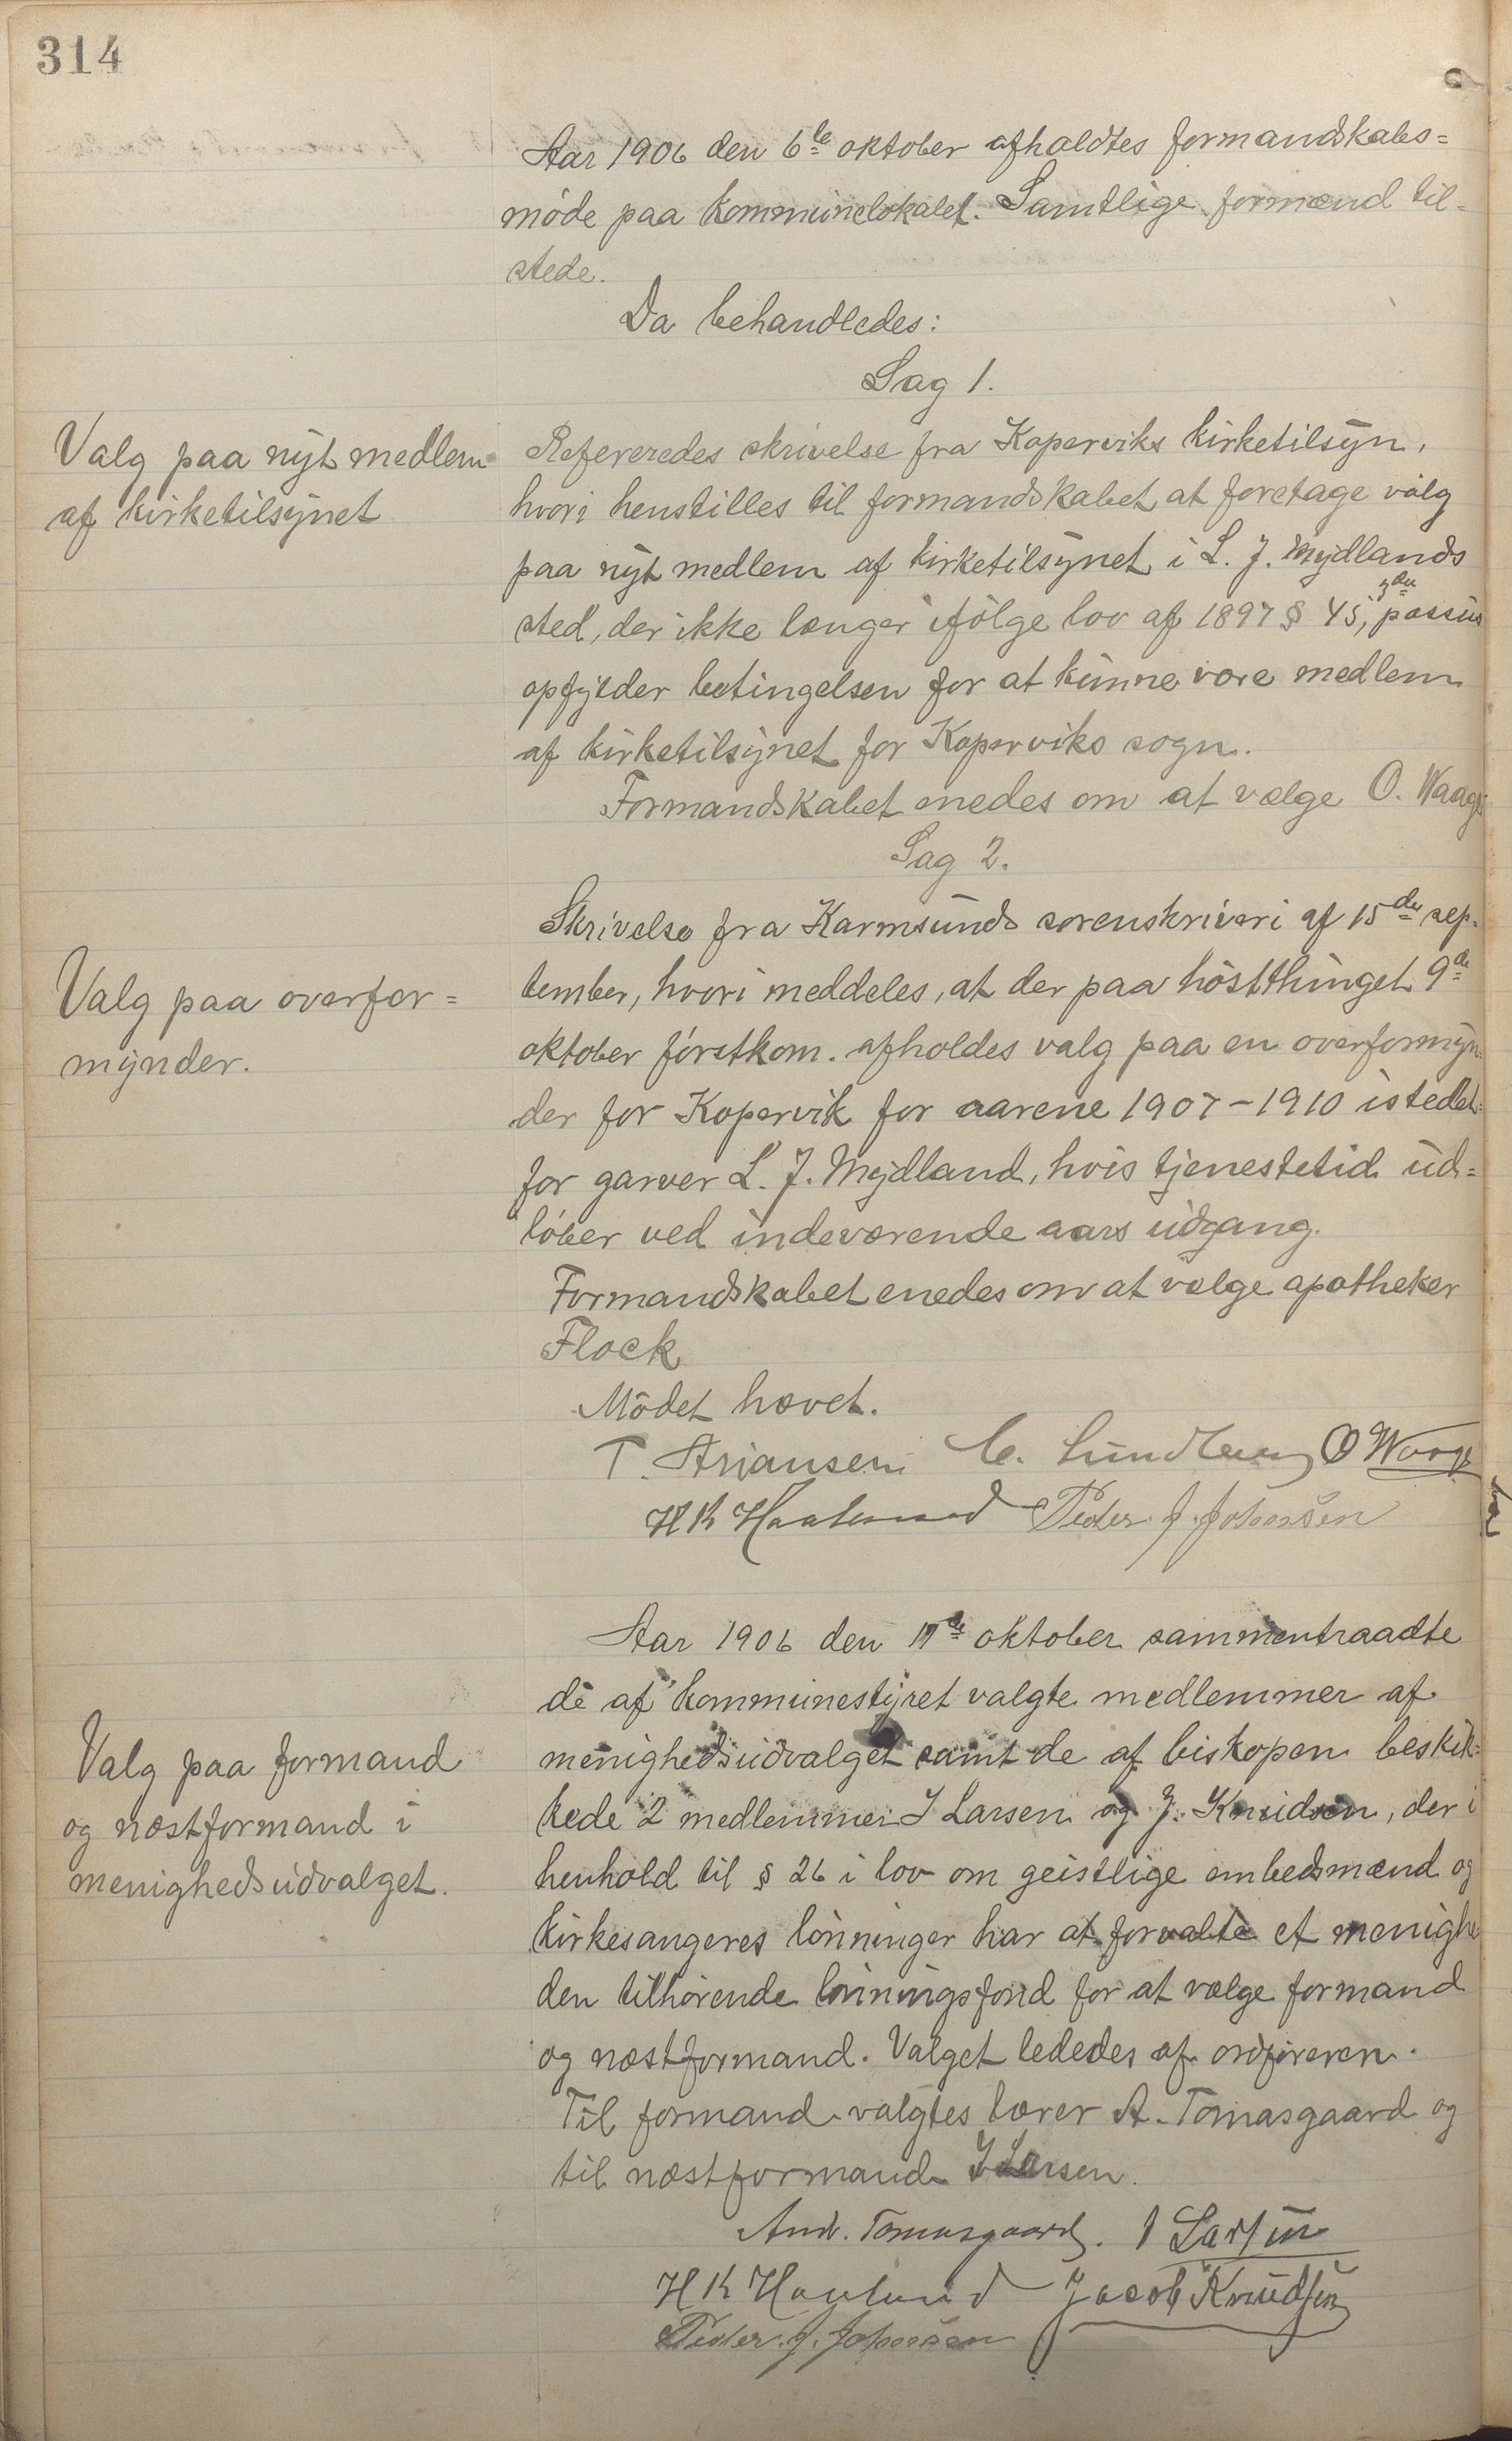 314
Aar 1906 den 6te oktober afholdtes formandskabs=
möde paa kommunelokalet. Samtlige formænd til-
stede.
Da behandledes:
Sag 1.
Valg paa nyt medlem
af kirketilsynet
Refereredes skrivelse fra Koperviks kirketilsyn,
hvori henstilles til formandskabet at foretage valg
paa nyt medlem af kirketilsynet i L. J. Mydlands
sted, der ikke længer ifölge lov af 1897 § 45, 3die passus
opfylder betingelsen for at kunne være medlem
af kirketilsynet for Koperviks sogn.
Formandskabet enedes om at vælge O. Waage
Sag 2.
Valg paa overfor=
mynder.
Skrivelse fra Karmsunds sorenskriveri af 15de sep-
tember, hvori meddeles, at der paa höstthinget 9de
oktober förstkom. afholdes valg paa en overformyn-
der for Kopervik for aarene 1907-1910 istedet=
for garver L. J. Mydland, hvis tjenestetid ud=
löber ved indeværende aars udgang.
Formandskabet enedes om at vælge apotheker
Flock
Mödet hævet.
T. Arjansen C. Lundberg O Waage
H K Haaland Peder J. Johansen
Aar 1906 den oktober sammentraadte
de af kommunestyret valgte medlemmer af
menighedsudvalget samt de af biskopen beskik=
kede 2 medlemmer I Larsen og J. Knudsen, der i
henhold til § 26 i lov om geistlige embedsmænd og
kirkesangeres lönninger har at forvalte et menighe
den tilhörende lönningsfond for at vælge formand
og næstformand. Valget lededes af ordföreren.
Til formand valgtes lærer A. Tomasgaard og
til næstformand I Larsen.
Valg paa formand
og næstformand i
menighedsudvalget.
And. Tomasgaard. I Larsen
H K Haaland Jacob Knudsen
Peder J. Johansen